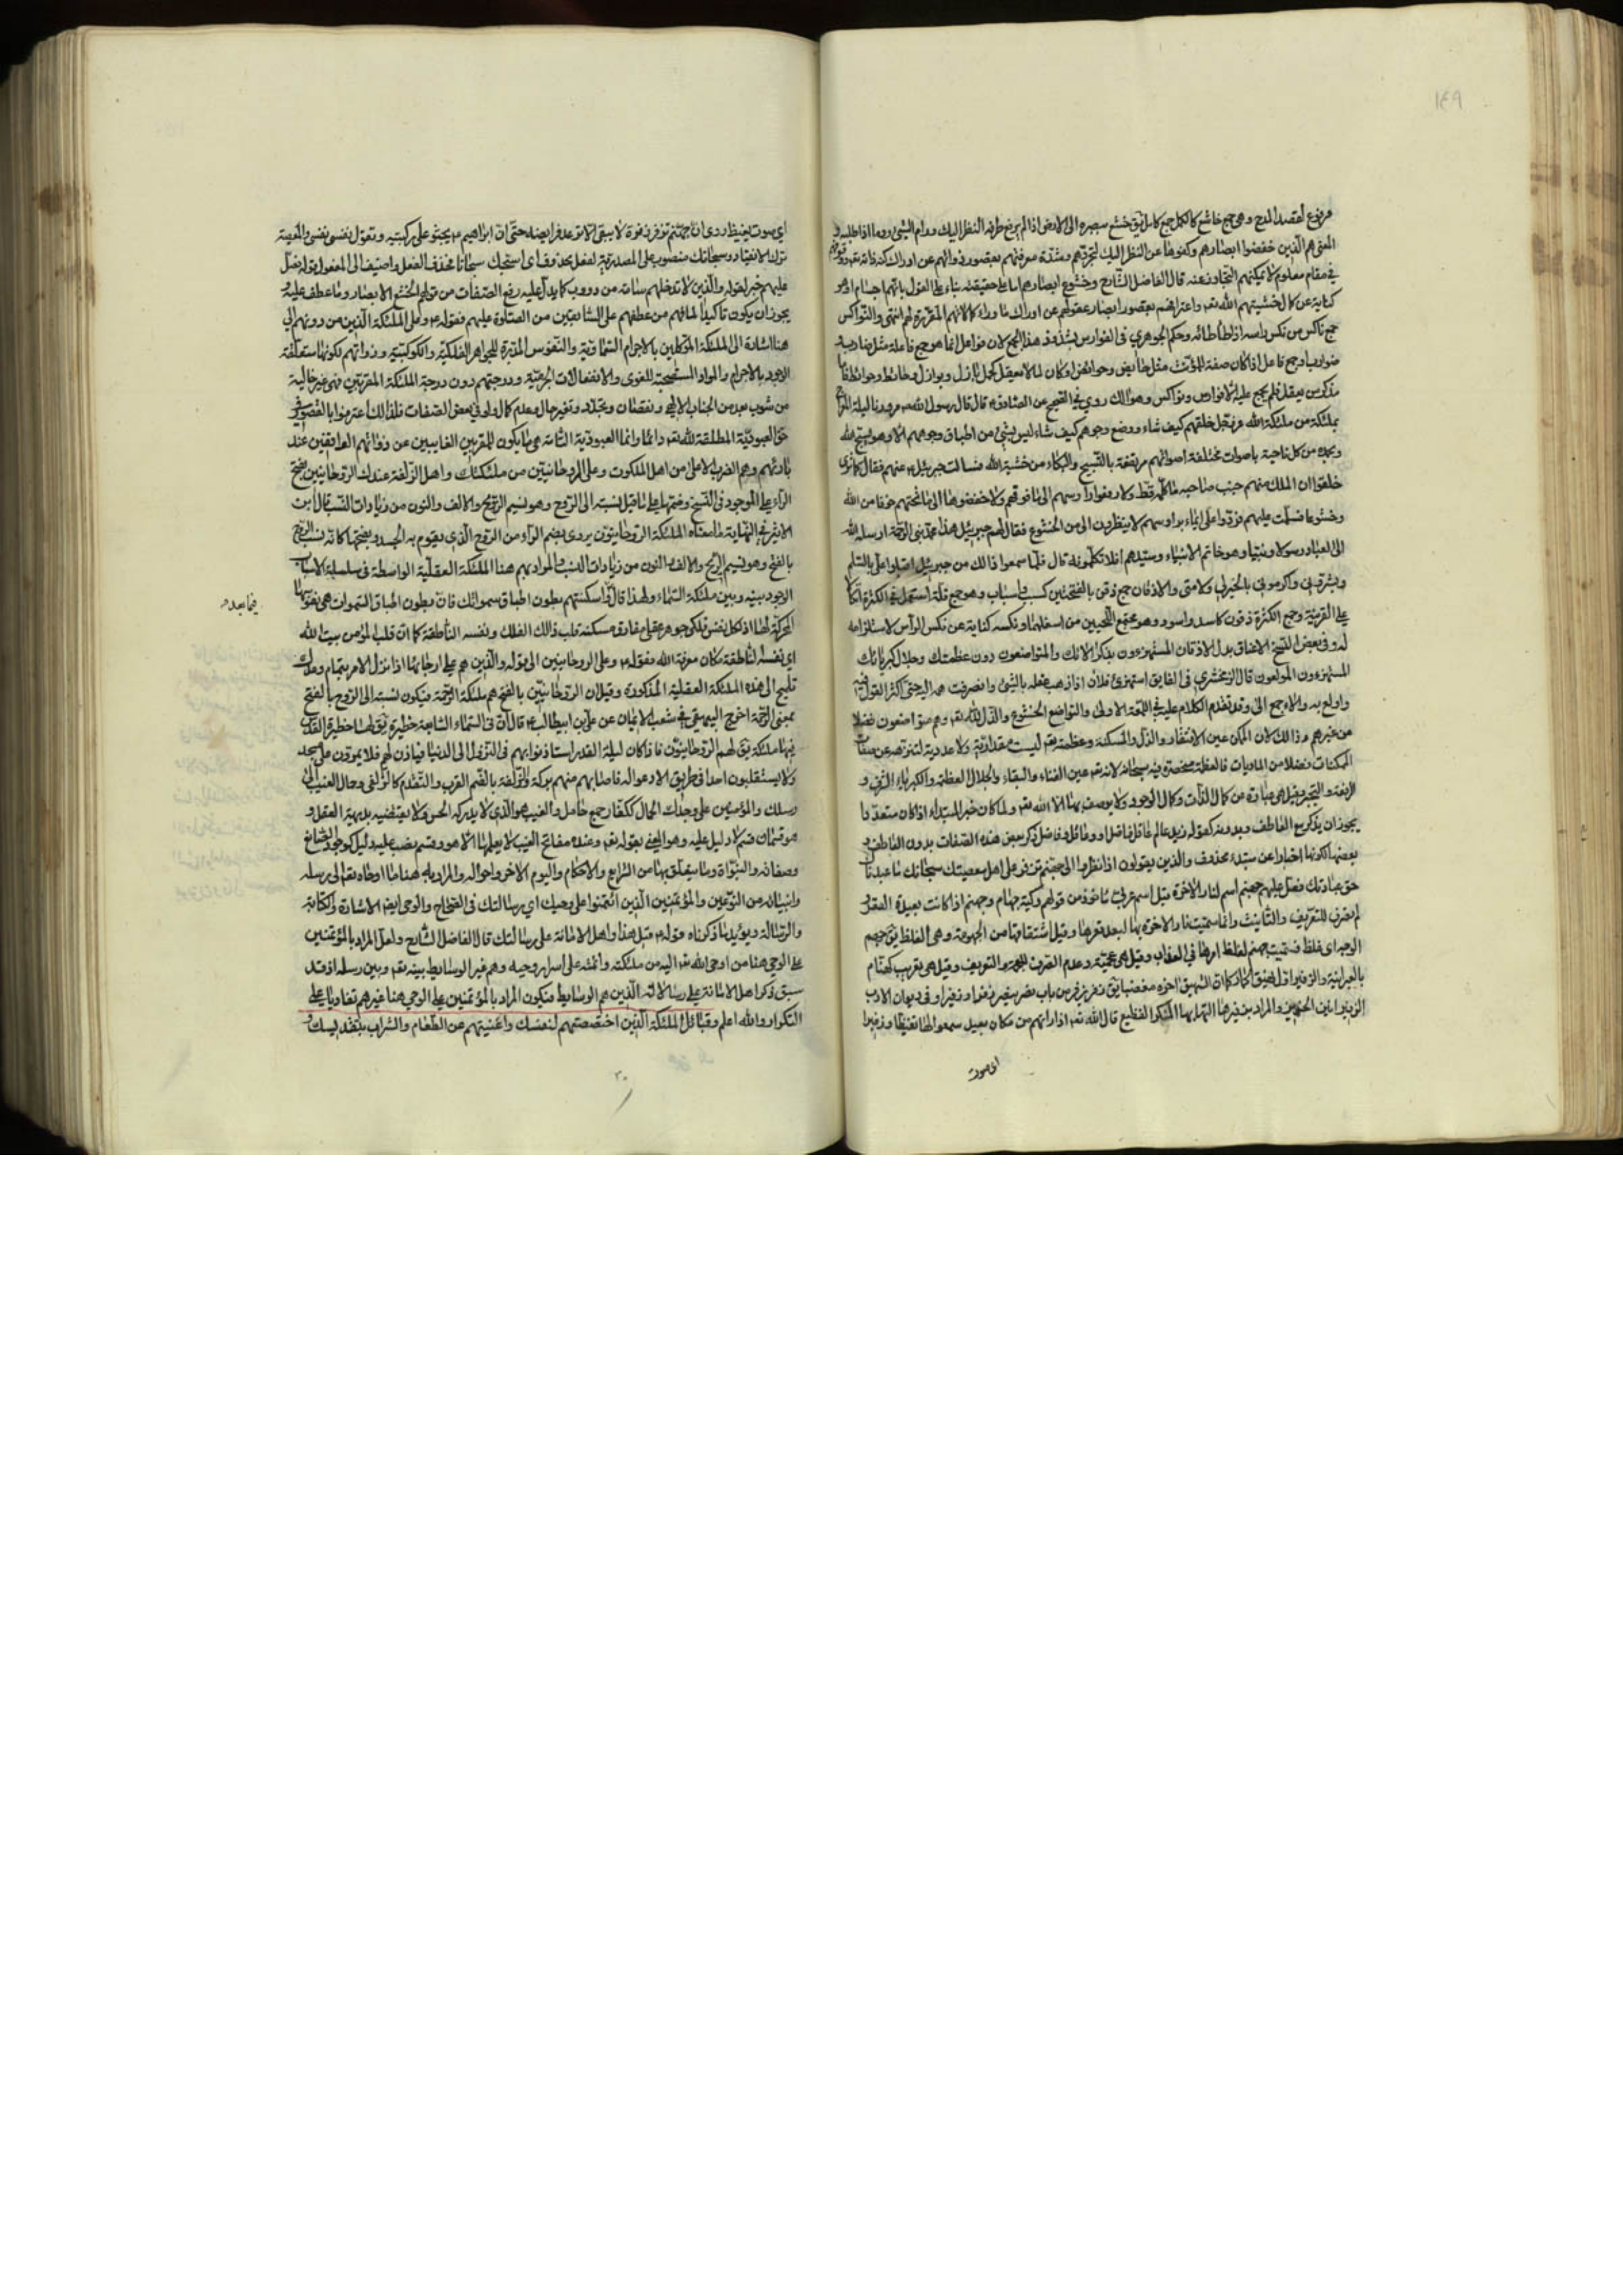 ١٤٩
مرفوع لقصد المدح وهى جمع خاشع كالكمل جمع كامل يق خشع ببصره الى الارض اذا لم يرفع طرفه النظر اليك ورام الشئ روما اذا طلبه و
المعنى هم الذين خفضوا ابصارهم وكفوها عن النظر اليك لتجردهم وشدة معرفتهم بقصور ذواتهم عن ادراك كنه ذاته تعه
فى مقام معلوم لا يمكنهم التجاوز عنه قال الفاضل الشارح وخشوع ابصارهم اما على حقيقته بناء على القول بانهم اجسام او هو
كناية عن كمال خشيتهم الله تعه واعترافهم بقصور ابصار عقولهم عن ادراك ما وراء كمالاتهم المقررة لهم انتهى والنواكس
جمع ناكس من نكس راسه اذا طأطائه وحكم الجوهرى فى الفوارس بشذوذ هذا الجمع لان فواعل انما هو جمع فاعلة مثل ضاربة و
ضوارب او جمع فاعل اذا كان صفة للمؤنث مثل حائض وحوائض او كان لما لا يعقل كجمل بازل وبوازل وحائط وحوائط فاما
مذكر من يعقل فلم يجمع عليه الا فوارس ونواكس وهوالك روى فى الصحيح عن الصادق ع قال قال رسول الله ص مررنا ليلة المعراج
بملئكة من ملئكة الله عز وجل خلقهم كيف شاء ووضع وجوههم كيف شاء ليس شئ من اطباق وجوههم الا وهو يسبح الله
ويحمده من كل ناحية باصوات مختلفة اصواتهم مرتفعة بالتسبيح والبكاء من خشية الله فسالت جبرئيل ع عنهم فقال كما ترى
خلقوا ان الملك منهم جنب صاحبه ما كلمه قط ولا رفعوا رؤسهم الى ما فوقهم ولا خفضوها الى ما تحتهم خوفا من الله
وخشوعا فسلمت عليهم فردوا على ايماء برؤسهم لا ينظرون الى من الخشوع فقال لهم جبرئيل هذا محمد نبى الرحمة ارسله الله
الى العباد رسولا ونبيا وهو خاتم الانبياء وسيدهم افلا تكلمونه قال فلما سمعوا ذلك من جبرئيل اقبلوا على بالسلم
وبشرونى واكرمونى بالخير لى ولامتى والاذقان جمع ذقن بالفتحتين كسبب واسباب وهو جمع قلة استعمل فى الكثرة اتكالا
على القرينة وجمع الكثرة ذقون كاسد واسود وهو مجمع اللحيين من اسفلهما ونكسه كناية عن نكس الراس لاستلزامه
له وفى بعض النسخ الاعناق بدل الاذقان المستهترون بذكر الائك والمتواضعون دون عظمتك وجلال كبريائك
المستهترون المولعون قال الزمخشرى فى الفايق استهتر فلان اذا ذهب عقله بالشئ وانصرفت همه اليه حتى اكثر القول فيه
واولع به والالاء جمع الى وقد تقدم الكلام عليه فى اللمعة الاولى والتواضع الخشوع والذل لله تعه وهم متواضعون فضلا
من غيرهم وذلك لان الممكن عين الافتقار والذل والمسكنة وعظمته تعه ليست مقدارية ولا عددية لتنزهه عن صفات
الممكنات فضلا من الماديات فالعظمة منحصرة فيه سبحانه لانه تعه عين الغناء والبقاء والجلال العظمة والكبرياء الترفع و
الرفعة والتجبر وقيل هى عبارة من كمال الذات وكمال الوجود ولا يوصف بها الا الله تعه ولما كان خبر المبتداء اذا كان متعددا
يجوز ان يذكر مع العاطف وبدونه كقوله زيد عالم عاقل فاضل او وعاقل وفاضل ذكر بعض هذه الصفات بدون العاطف و
بعضها لكونها اخبارا عن مبتداء محذوف والذين يقولون اذا نظروا الى جهنم تزفر على اهل معصيتك سبحانك ما عبدناك
حق عبادتك فصل عليهم جهنم اسم لنار الاخرة قيل اسم عربى ماخوذ من قولهم ركية جهنام وجهنم اذا كانت بعيدة القعر و
لم يصرف للتعريف والتانيث وانما سميت نار الاخرة بها لبعد قعرها وقيل اشتقاقها من الجهومة وهى الغلظ يق جهم
الوجه اى غلظ فسميت جهنم لغلظ امرها فى العذاب وقيل هى عجمية وعدم الصرف للعجمة والتعريف وقيل هى تعريب كهنام
بالعبرانية والزفير اول نهيق الحمار كما ان الشهيق اخره
الزفير اشد الانين والمراد بزفيرها التهابها المنكر الفظيع قال الله تعه اذا راتهم من مكان بعيد سمعوا لها تغيظا وزفيرا
اى صوت
اى صوت تغيظ روى ان جهنم تزفر زفرة لا يبقى احد الا ترعد فرايصه حتى ان ابراهيم ع يجثو على ركبتيه ويقول نفسى نفسى والمعصية
ترك الانقياد وسبحانك منصوب على المصدرية لفعل محذوف اى اسبحك سبحانا فحذف الفعل واضيف الى المفعول قوله فصل
عليهم خبر لقوله والذين لا تدخلهم سامة من دؤوب كما يدل عليه رفع الصفات من قوله الخشع الابصار وما عطف عليه و
يجوز ان يكون تاكيدا لما فهم من عطفهم على السابقين من الصلوة عليهم فقوله ع وعلى الملئكة الذين من دونهم الى
هنا اشارة الى الملئكة الموكلين بالاجرام السماوية والنفوس المدبرة للجواهر الفلكية والكوكبية وذواتهم لكونها متعلقة
الوجود بالاجرام والمواد المستصحبة للقوى والانفعالات الجزئية ودرجتهم دون درجة الملئكة المقربين فهى غير خالية
من شوب بعد من الجناب الالهى ونقصان وتجدد وتغير حال وعدم كمال ولو فى بعض الصفات فلذلك اعترفوا بالقصور فى
حق العبودية المطلقة لله تعه دائما وانما العبودية التامة هى ما يكون للمقربين الغايبين عن ذواتهم الواقفين عند
بارئهم وهم الضرب الاعلى من اهل الملكوت وعلى الروحانيين من ملئكتك واهل الزلفة عندك الروحانيين بفتح
الراء على الموجود فى النسخ وضمها على ما قيل نسبته الى الروح وهو نسيم الريح والالف والنون من زيادات النسب قال ابن
الاثير فى النهاية ما معناه الملئكة الروحانيون يروى بضم الراء من الروح الذى يقوم به الجسد وبفتحها كانه نسب الى الروح
بالفتح وهو نسيم الريح والالف والنون من زيادات النسب والمراد بهم هنا الملئكة العقلية الواسطة فى سلسلة الاسباب
الوجود بينه وبين ملئكة السماء ولهذا قال واسكنتهم بطون اطباق سمواتك فان بطون اطباق السموات هى نفوسها
فيما بعد و
المحركة لها اذ لكل نفس فلك جوهر عقلى مفارق مسكنه قلب ذلك الفلك ونفسه الناطقة كما ان قلب المؤمن بيت الله
اى نفسه الناطقة مكان معرفة الله فقوله ع وعلى الروحانيين الى قوله والذين هم على ارجائها اذا نزل الامر بتمام وعدك
تلميح الى هذه الملئكة العقلية المذكورة وقيل ان الروحانيين بالفتح هم ملئكة الرحمة فيكون نسبته الى الروح بالفتح
بمعنى الرحمة اخرج البيهقى فى شعب الايمان عن على بن ابيطالب ع قال ان فى السماء السابعة حظيرة يق لها حظيرة القدس
فيها ملئكة يق لهم الروحانيون فاذا كان ليلة القدر استاذنوا ربهم فى النزول الى الدنيا فياذن لهم فلا يمرون على مسجد
ولا يستقبلون احدا فى طريق الا دعوا له فاصابهم منهم بركة والزلفة بالضم القرب والتقدم كالزلفى وحمال الغيب الى
رسلك والمؤتمنين على وحيك الحمال ككفار جمع حامل والغيب هو الذى لا يدركه الحس ولا يقتضيه بديهية العقل و
هو قسمان قسم لا دليل عليه وهو المعنى بقوله تعه وعنده مفاتح الغيب لا يعلمها الا هو وقسم نصب عليه دليل كوجود الصانع
وصفاته والنبوة وما يتعلق بها من الشرايع والاحكام واليوم الاخر واحواله والمراد به هنا ما اوحاه تعه الى رسله
وانبيائه من النوعين والمؤتمنين الذين ائتمنوا على وحيك اى رسالتك فى الصحاح والوحى ايضا الاشارة والكتابة
والرسالة ويؤيد ما ذكرناه قوله ع قبل هذا واهل الامانة على رسالتك قال الفاضل الشارح ولعل المراد بالمؤتمنين
على الوحى هنا من اوحى الله تعه اليه من ملئكته وائتمنه على اسرار وحيه وهم غير الوسايط بينه تعه وبين رسله اذ قد
سبق ذكر اهل الامانة على رسالاته الذين هم الوسايط فيكون المراد بالمؤتمنين على الوحى هنا غيرهم تفاديا على
التكرار والله اعلم وقبائل الملئكة الذين اختصصتهم لنفسك واغنيتهم عن الطعام والشراب بتقديسك و